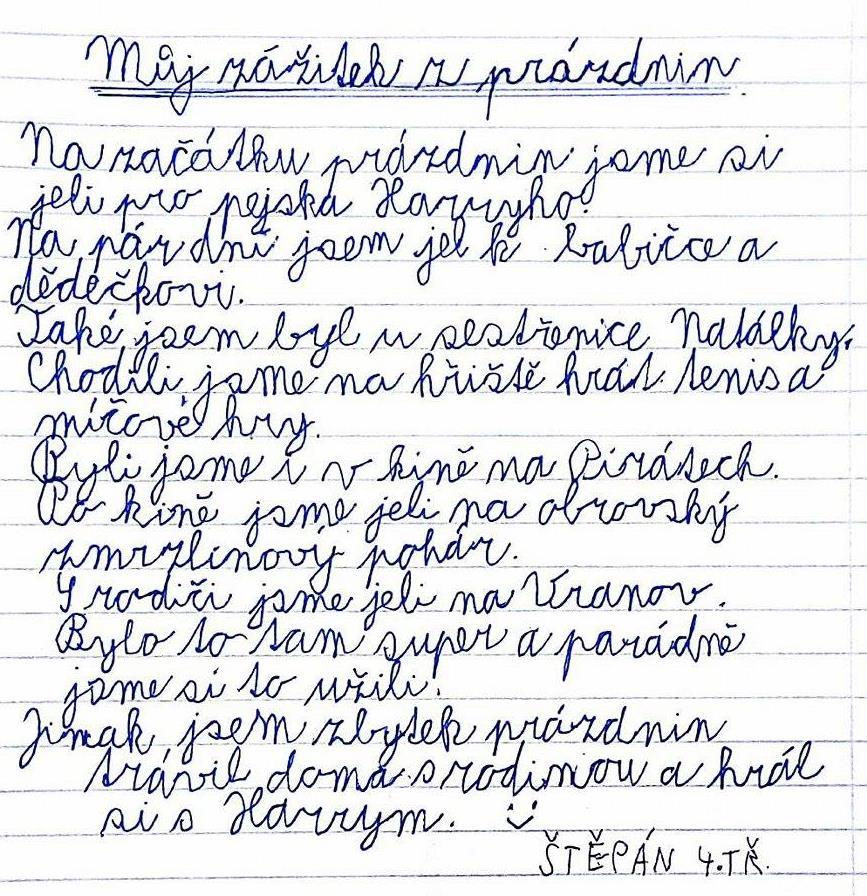 Můj zážitek z prázdnin.
Na začátku prázdnin jsme si
jeli pro pejska Harryho!
Na pár dní jsem jel k babičce a
dědečkovi.
Také jsem byl u sestřenice Natálky.
Chodili jsme na hřiště hrát tenis a
míčové hry.
Byli jsme i v kině na Pirátech.
Po kině jsme jeli na obrovský
zmrzlinový pohár.
S rodiči jsme jeli na Vranov.
Bylo to tam super a parádně
jsme si to užili!
Jinak jsem zbytek prázdnin
trávil doma s rodinou a hrál
si s Harrym. :)
ŠTĚPÁN 4.TŘ.